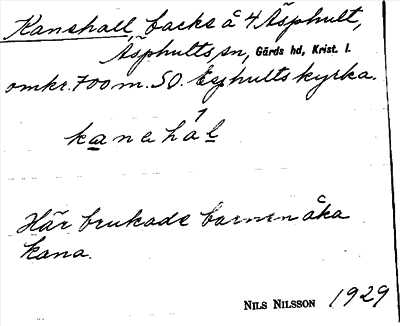 Kanehall, backe å 4 Äsphult,
Äsphults sn, Gärds hd, Krist. l.
omkr. 700 m. SO. Äsphults kyrka.
kanehål
Här brukade barnen åka
kana.
NILS NILSSON 1929